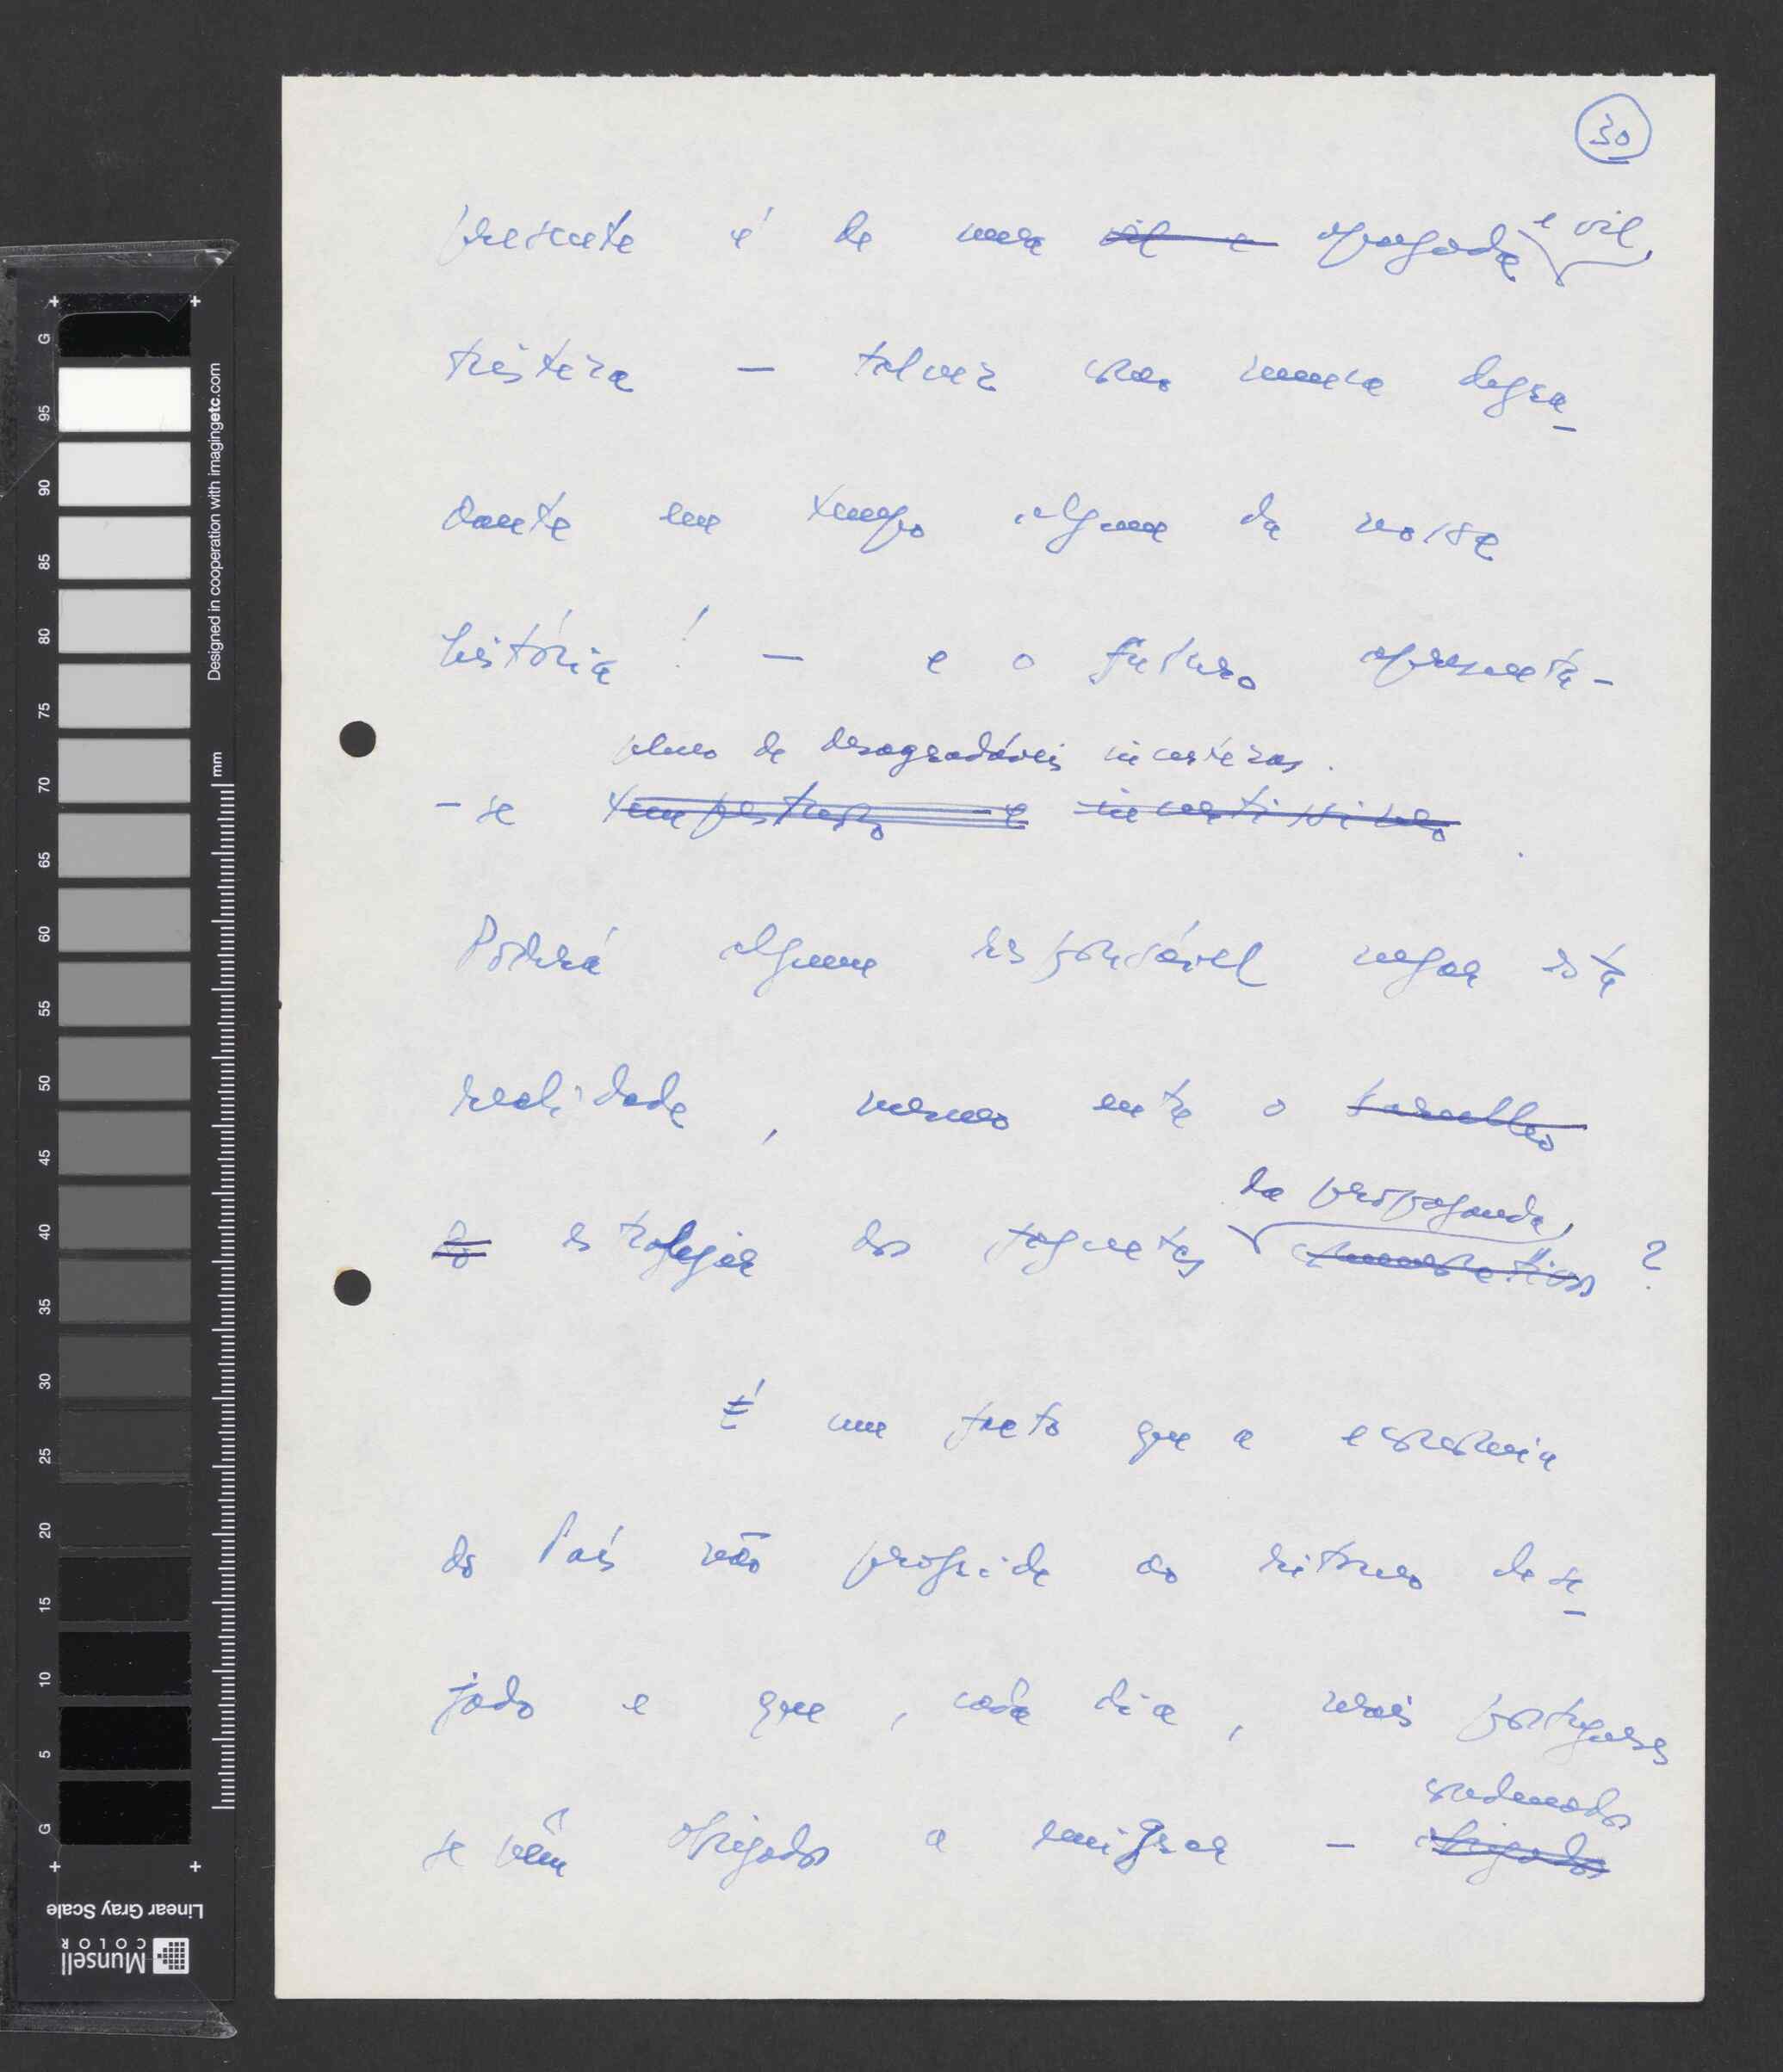 30
presente é de uma vil e apagada e vil
tristeza — talvez como nunca degra-
dante em tempo algum da nossa
história! — e o futuro apresenta-
pleno de desagradáveis incertezas.
-se tempestuoso e incertíssimo.
Poderá algum responsável negar esta
realidade, mesmo entre o barulho
da propaganda,
do estralejar dos foguetes ?
É um facto que a economia
do País não progride ao ritmo dese-
jado e que, cada dia, mais portugueses
condenados
se vêm obrigados a emigrar — obrigados
G 95 90 85 80 75 70 65 60 55 50 45 40 35 30 25 20 15 10 5 G
Designed in cooperation with imagingetc.com
mm
Linear Gray Scale
Munsell
COLOR